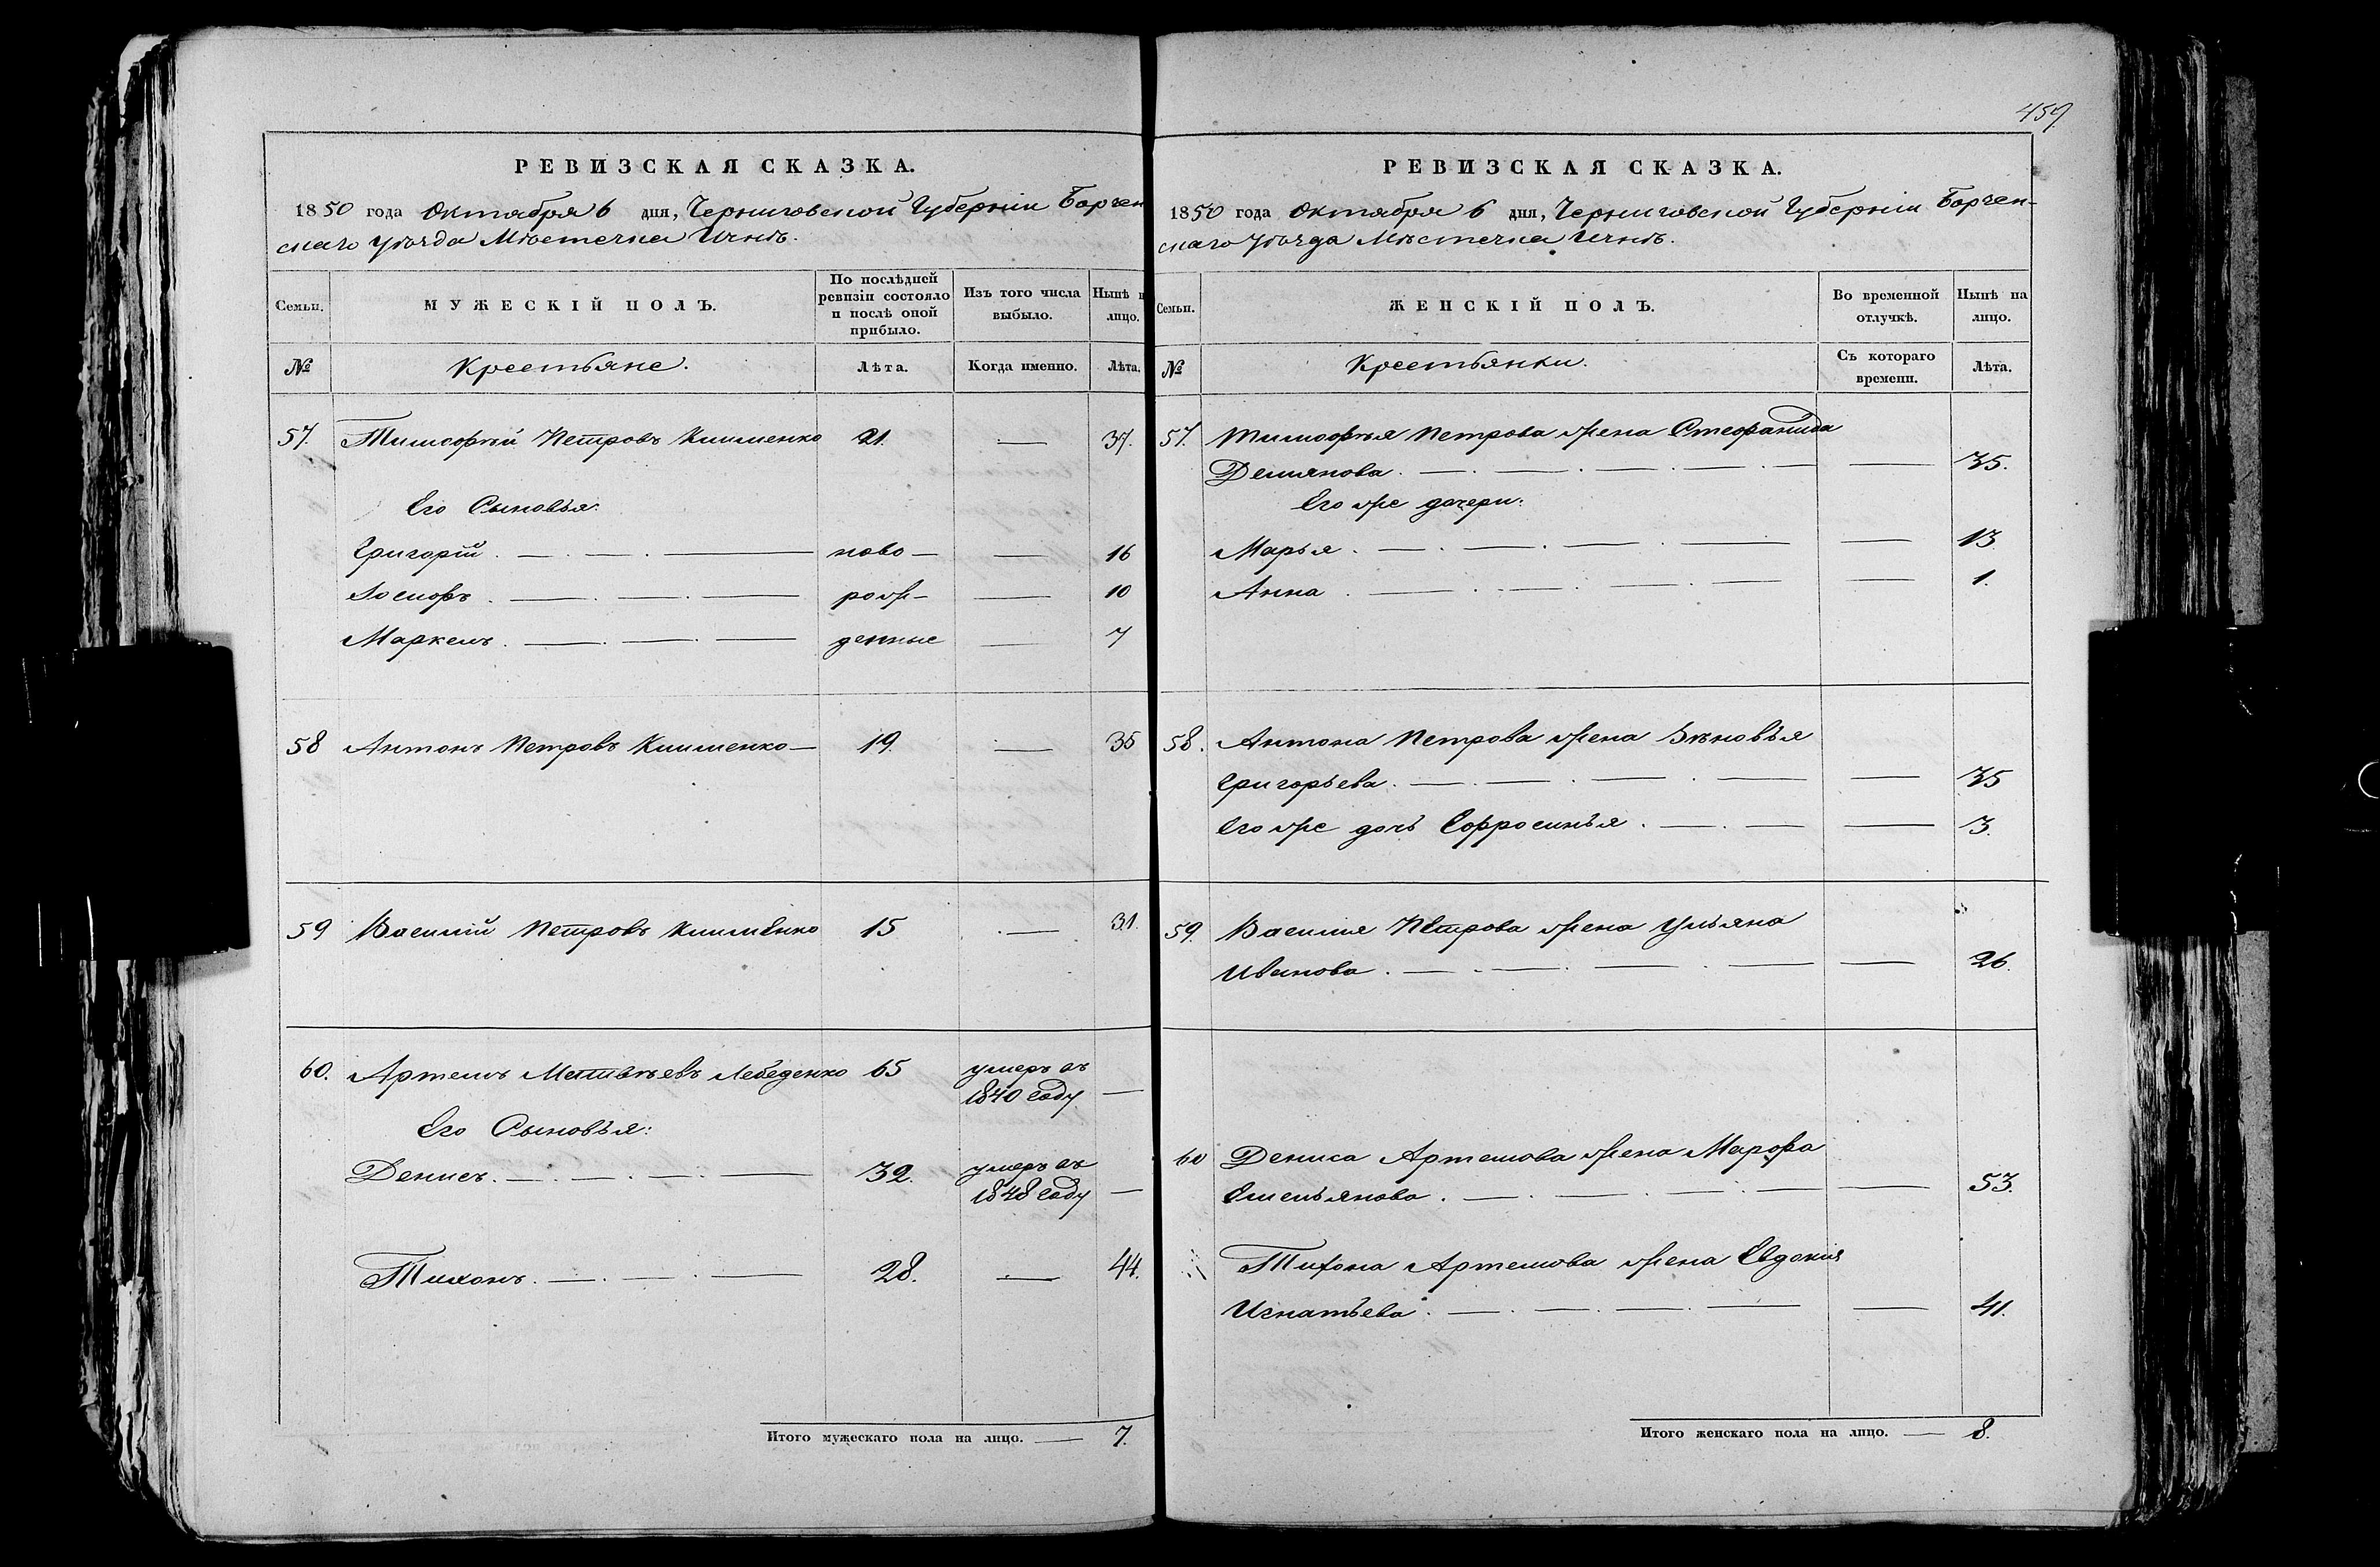 459
РЕВИЗСКАЯ СКАЗКА.
1850 года Октября 6 дня, Черниговской Губерніи Борзен
скаго уѣзда Мѣстечка Ичнѣ.
Семьи. МУЖЕСКІЙ ПОЛЪ. По послѣдней ревизіи состояло и послѣ оной прибыло. Изъ того числа выбыло. Нынѣ н лицо.
№ Крестьяне. Лѣта. Когда именно. Лѣта.
57. Тимофѣй Петровъ Клименко 21. — 37.
Его Сыновья:
Григорій. — ново — — 16
Іосифъ. — рож- — 10
Маркелъ. — денные — 7
58 Антонъ Петровъ Клименко — 19. — 35
59 Василій Петровъ Клименко 15 — 31.
60. Артемъ Матвѣевъ Лебеденко 65 умеръ въ
1840 году —
Его Сыновья:
Денисъ. — 32. умеръ въ
1848 году —
Тихонъ. — 28. — 44.
Итого мужескаго пола на лицо. — 7.
РЕВИЗСКАЯ СКАЗКА.
1850 года Октября 6 дня, Черниговской Губерніи Борзен-
скаго уѣзда Мѣстечка Ичнѣ.
Семьи. ЖЕНСКІЙ ПОЛЪ. Во временной отлучкѣ. Нынѣ на лицо.
№ Крестьянки. Съ котораго времени. Лѣта.
57. Тимофѣя Петрова жена Стефанида
Демянова. — — 35.
Его же дочери:
Марья. — — 13
Анна. — — 1.
58. Антона Петрова жена Зѣновья
Григорьева. — — 35
Его же дочь Ефросинья. — — 3.
59. Василія Петрова жена Ульяна
Иванова. — — 26.
60 Дениса Артемова жена Марфа
Емельянова. — — 53.
Тихона Артемова жена Евдокія
Игнатьева. — — 41.
Итого женскаго пола на лицо. — 8.